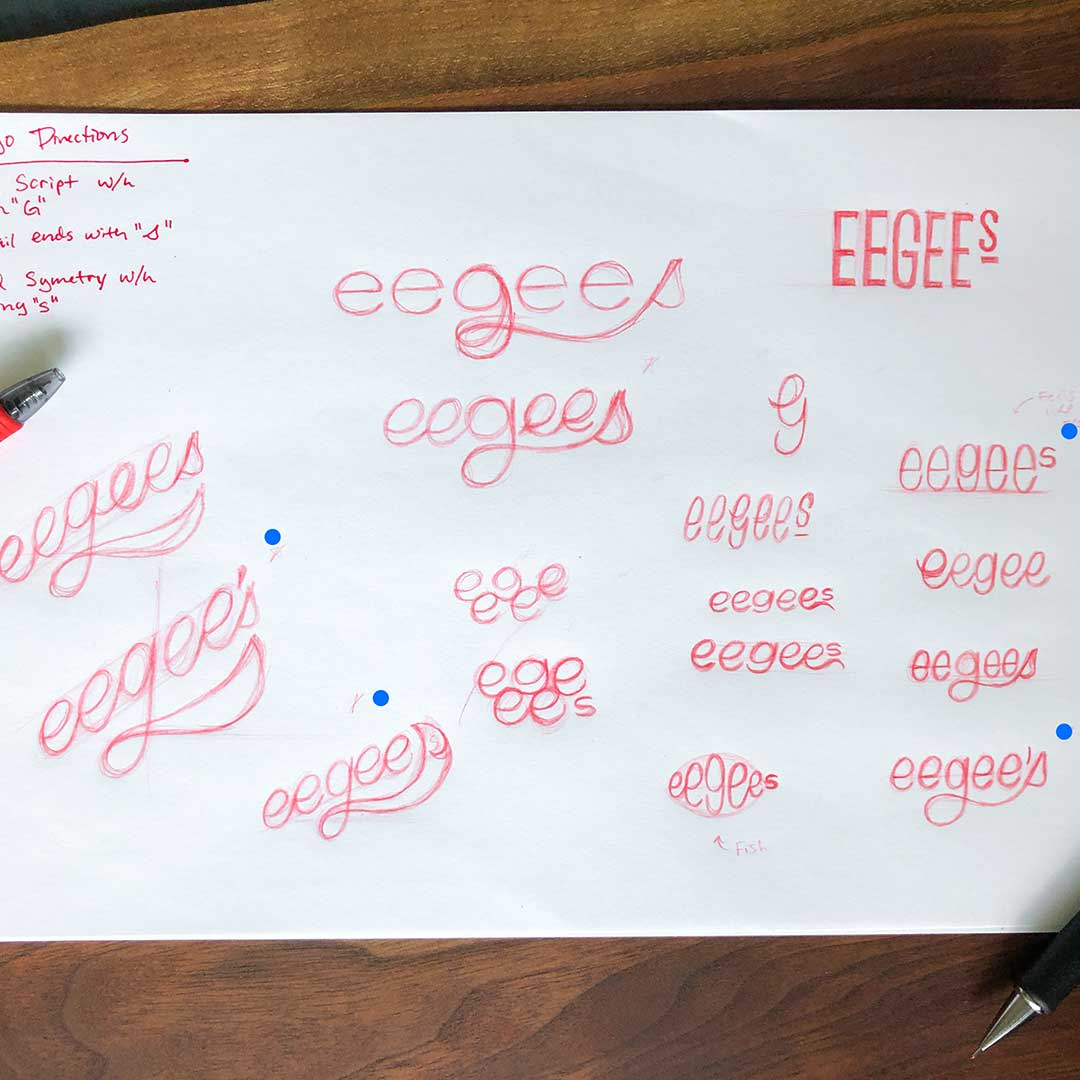 Directions
Script w/h
"G"
ends with "s"
Symetry w/h
"s"
EEGEEs
eegees
eegees
G
eegees
eegees
eegees
eegees
eege
ee
eegee
eegees
eegees
eegee's
ege
ees
eegees
eegees
eegees
eegee's
Fish